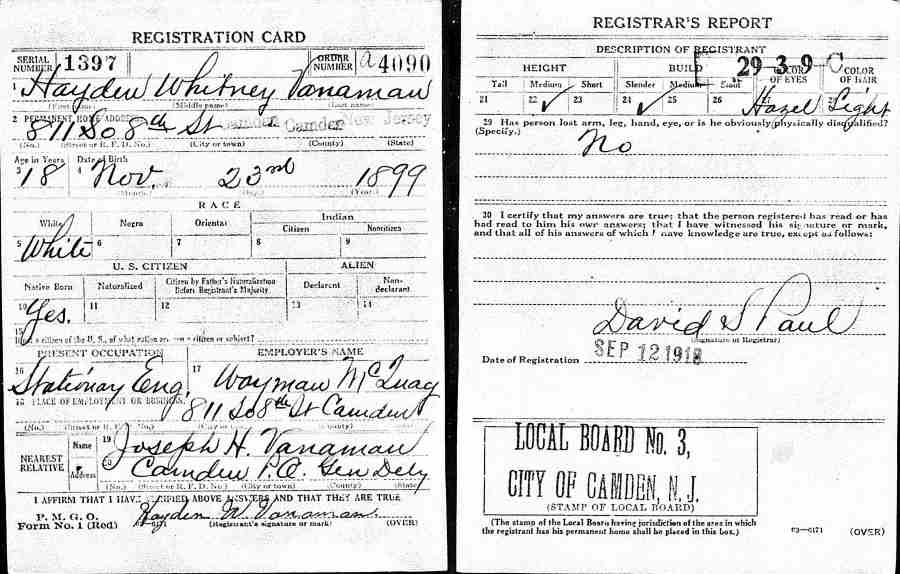 REGISTRATION CARD
SERIAL NUMBER 1397 ORDER NUMBER a4090
1 Hayden Whitney Vanaman
(First name) (Middle name) (Last name)
2 PERMANENT HOME ADDRESS
811 So 8th St Camden Camden New Jersey
(No.) (Street or R. F. D. No.) (City or town) (County) (State)
Age in Years Date of Birth
3 18 4 Nov. 23rd 1899
(Month.) (Day.) (Year.)
RACE
White Negro Oriental Indian
Citizen Noncitizen
5 White 6 7 8 9
U. S. CITIZEN ALIEN
Native Born Naturalized Citizen by Father's Naturalization Before Registrant's Majority Declarant Non-declarant
10 Yes. 11 12 13 14
15
If not a citizen of the U. S., of what nation are you a citizen or subject?
PRESENT OCCUPATION EMPLOYER'S NAME
16 Stationary Eng. 17 Wayman McQuag
18 PLACE OF EMPLOYMENT OR BUSINESS
811 So 8th St Camden
(No.) (Street or R. F. D. No.) (City or town) (County) (State)
NEAREST RELATIVE Name 19 Joseph H. Vanaman
Address 20 Camden P.O. Gen Dely
(No.) (Street or R. F. D. No.) (City or town) (County) (State)
I AFFIRM THAT I HAVE VERIFIED ABOVE ANSWERS AND THAT THEY ARE TRUE
P. M. G. O.
Form No. 1 (Red) Hayden W. Vanaman
(Registrant's signature or mark) (OVER)
REGISTRAR'S REPORT
DESCRIPTION OF REGISTRANT
29 3 9 C
HEIGHT BUILD COLOR OF EYES COLOR OF HAIR
Tall Medium Short Slender Medium Stout
21 22 ✓ 23 24 ✓ 25 26 27 Hazel 28 Light
29 Has person lost arm, leg, hand, eye, or is he obviously physically disqualified?
(Specify.) No
30 I certify that my answers are true; that the person registered has read or has
had read to him his own answers; that I have witnessed his signature or mark,
and that all of his answers of which I have knowledge are true, except as follows:
David S Paul
(Signature of Registrar)
Date of Registration SEP 12 1918
LOCAL BOARD No. 3,
CITY OF CAMDEN, N. J.
(STAMP OF LOCAL BOARD)
(The stamp of the Local Board having jurisdiction of the area in which
the registrant has his permanent home shall be placed in this box.)
03—6171 (OVER)